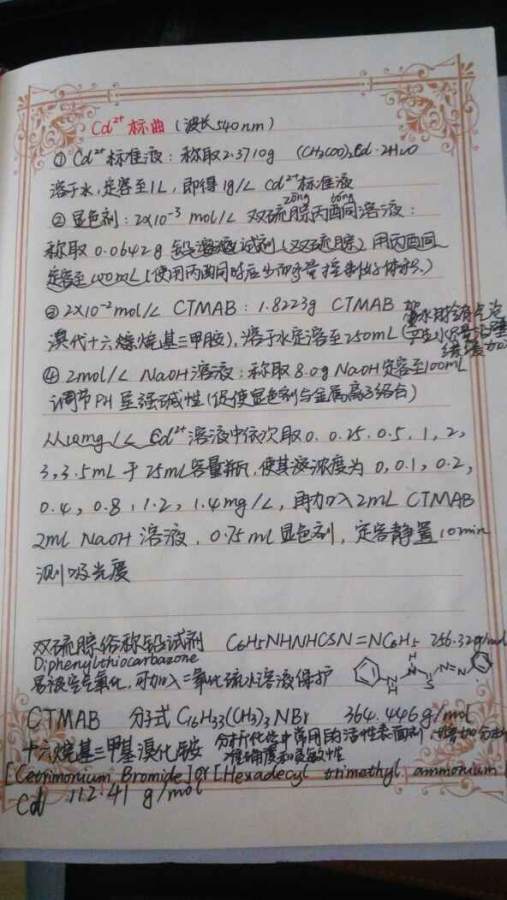 Cd²⁺标曲 (波长540nm)
① Cd²⁺标准液: 称取2.3710g (CH₃COO)₂Cd·2H₂O
溶于水,定容至1L,即得1g/L Cd²⁺标准液
zōng tóng
② 显色剂: 2×10⁻³ mol/L 双硫腙丙酮溶液:
称取0.0642g 铅试剂(双硫腙)用丙酮
定容至100mL(使用丙酮时应少而多量控制好体积)
③ 2×10⁻²mol/L CTMAB: 1.8223g CTMAB
溴代十六烷基三甲胺),溶于水定容至250mL
④ 2mol/L NaOH溶液: 称取8.0g NaOH定容至100mL
调节PH呈强碱性(促使显色剂与金属离子络合)
从10mg/L Cd²⁺溶液中依次取0, 0.25, 0.5, 1, 2,
3, 3.5mL 于25mL容量瓶,使其液浓度为0, 0.1, 0.2,
0.4, 0.8, 1.2, 1.4mg/L, 再加入2mL CTMAB
2ml NaOH溶液, 0.75ml显色剂, 定容静置10min
测吸光度
双硫腙俗称铅试剂 C₆H₅NHNHCSN=NC₆H₅ 256.32g/mol
Diphenylthiocarbazone
易被空气氧化,可加入二氧化硫水溶液保护
N H H N S N=N
CTMAB 分子式 C₁₆H₃₃(CH₃)₃NBr 364.446g/mol
十六烷基三甲基溴化铵 分析化学中常用的活性表面剂
准确度和灵敏性
[Cetrimonium Bromide]or[Hexadecyl trimethyl ammonium
Cd 112.41 g/mol